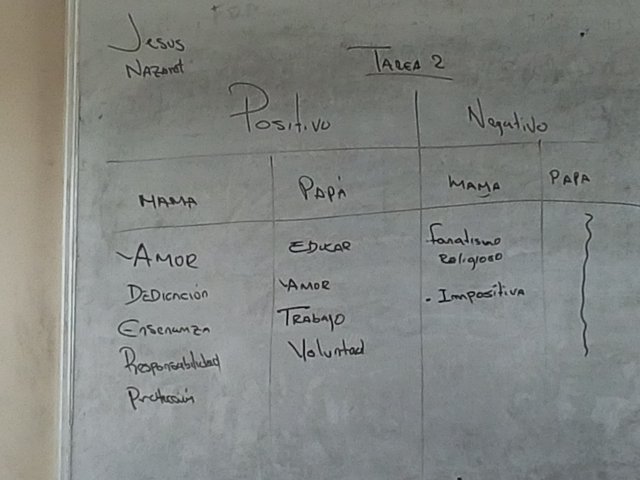 Jesus
Nazaret
TAREA 2
Positivo
Negativo
MAMA
PAPÁ
MAMA
PAPA
AMOR
EDUCAR
fanatismo
Religioso
DEDICACIÓN
AMOR
. Impositiva
Enseñanza
TRABAJO
Responsabilidad
Voluntad
Protección